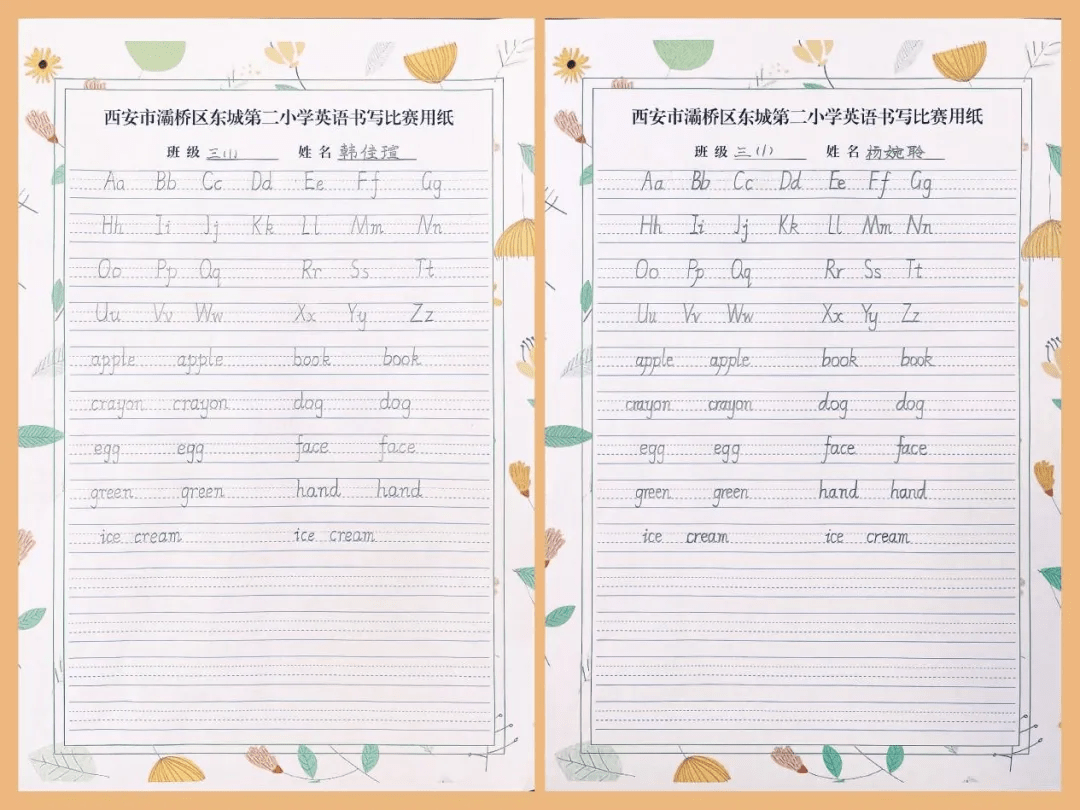 西安市灞桥区东城第二小学英语书写比赛用纸
班级 三(1) 姓名 韩佳瑄
Aa Bb Cc Dd Ee Ff Gg
Hh Ii Jj Kk Ll Mm Nn
Oo Pp Qq Rr Ss Tt
Uu Vv Ww Xx Yy Zz
apple apple book book
crayon crayon dog dog
egg egg face face
green green hand hand
ice cream ice cream
西安市灞桥区东城第二小学英语书写比赛用纸
班级 三(1) 姓名 杨婉聆
Aa Bb Cc Dd Ee Ff Gg
Hh Ii Jj Kk Ll Mm Nn
Oo Pp Qq Rr Ss Tt
Uu Vv Ww Xx Yy Zz
apple apple book book
crayon crayon dog dog
egg egg face face
green green hand hand
ice cream ice cream